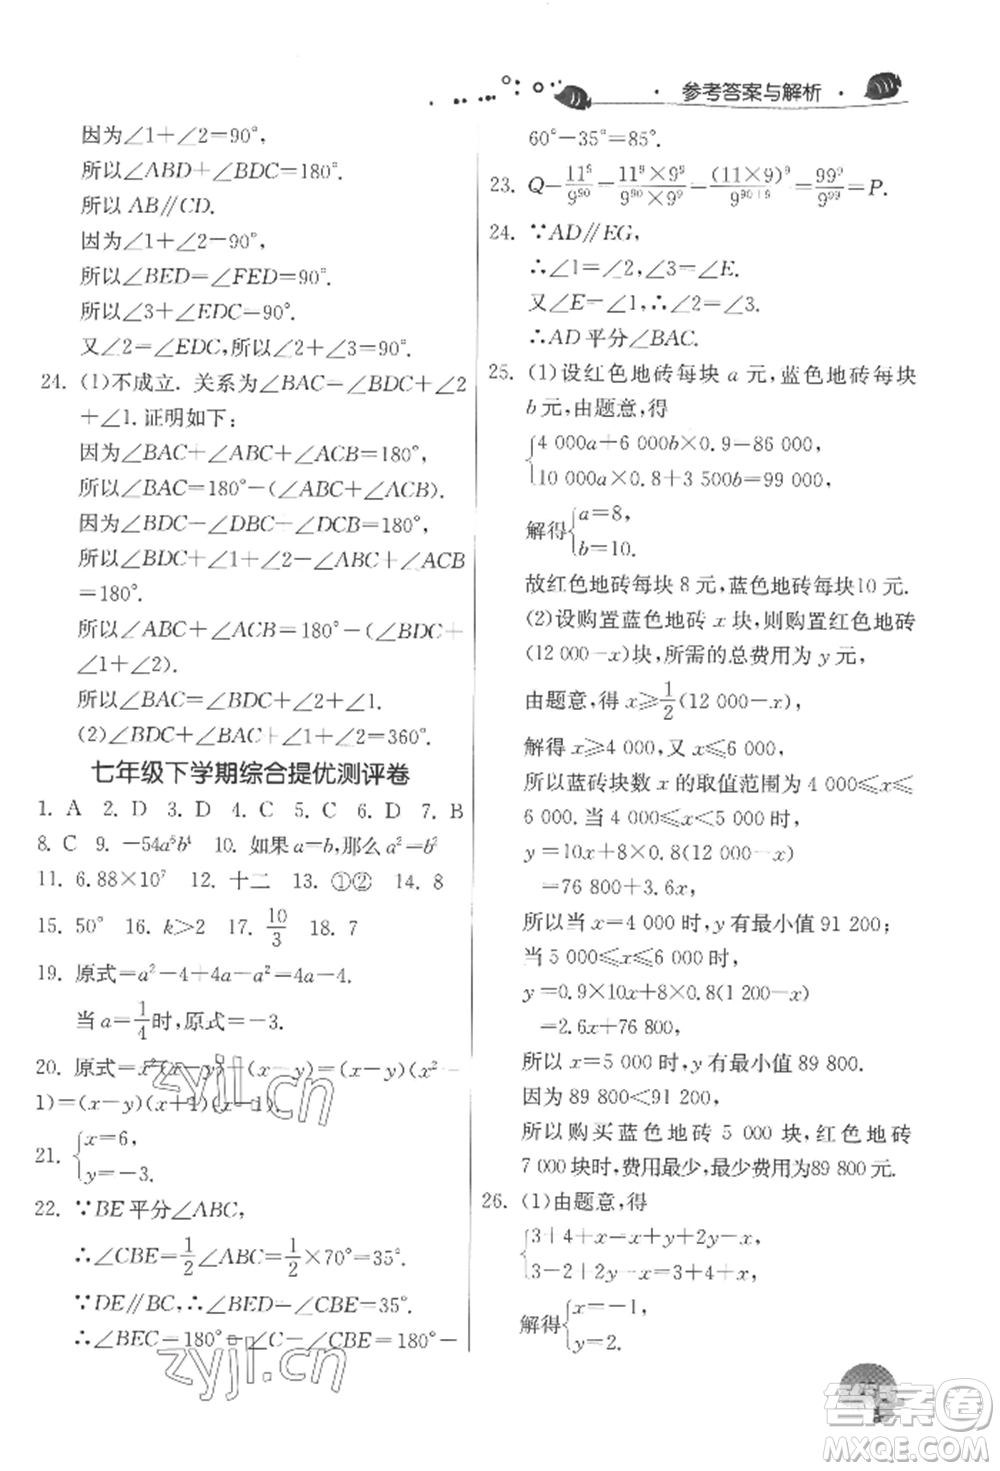 参考答案与解析
因为∠1+∠2=90°,
所以∠ABD+∠BDC=180°.
所以 AB∥CD.
因为∠1+∠2-90°,
所以∠BED=∠FED=90°.
所以∠3+∠EDC-90°.
又∠2=∠EDC,所以∠2+∠3=90°.
24. (1)不成立. 关系为∠BAC=∠BDC+∠2
+∠1.证明如下:
因为∠BAC+∠ABC+∠ACB=180°,
所以∠BAC=180°-(∠ABC+∠ACB).
因为∠BDC-∠DBC-∠DCB=180°,
所以∠BDC+∠1+∠2-∠ABC+∠ACB
=180°.
所以∠ABC+∠ACB=180°-(∠BDC+
∠1+∠2).
所以∠BAC=∠BDC+∠2+∠1.
(2)∠BDC+∠BAC+∠1+∠2=360°.
七年级下学期综合提优测评卷
1. A 2. D 3. D 4. C 5. C 6. D 7. B
8. C 9. -54a⁵b⁴ 10. 如果 a=b,那么 a²=b²
11. 6.88×10⁷ 12. 十二 13. ①② 14. 8
15. 50° 16. k>2 17. 10/3 18. 7
19. 原式=a²-4+4a-a²=4a-4.
当 a=1/4时,原式=-3.
20. 原式=x²(x-y)+(x-y)=(x-y)(x²-
1)=(x-y)(x+1)(x-1).
21. {x=6,
y=-3.
22. ∵BE平分∠ABC,
∴∠CBE=1/2∠ABC=1/2×70°=35°.
∵DE∥BC,∴∠BED-∠CBE=35°.
∴∠BEC=180°-∠C-∠CBE=180°-
60°-35°=85°.
23. Q-11⁹/9⁹⁰-11⁹×9⁹/9⁹⁰×9⁹-(11×9)⁹/9⁹⁰⁺⁹=99⁹/9⁹⁹=P.
24. ∵AD∥EG,
∴∠1=∠2,∠3=∠E.
又∠E-∠1,∴∠2=∠3.
∴AD平分∠BAC.
25. (1)设红色地砖每块 a 元,蓝色地砖每块
b 元,由题意,得
{4 000a+6 000b×0.9-86 000,
10 000a×0.8+3 500b=99 000,
解得{a=8,
b=10.
故红色地砖每块 8 元,蓝色地砖每块10 元.
(2)设购置蓝色地砖 x 块,则购置红色地砖
(12 000-x)块,所需的总费用为 y 元,
由题意,得 x≥1/2(12 000-x),
解得 x≥4 000,又 x≤6 000,
所以蓝砖块数 x 的取值范围为 4 000≤x≤
6 000. 当 4 000≤x<5 000 时,
y=10x+8×0.8(12 000-x)
=76 800+3.6x,
所以当 x=4 000 时,y 有最小值 91 200;
当 5 000≤x≤6 000 时,
y=0.9×10x+8×0.8(1 200-x)
=2.6x+76 800,
所以 x=5 000 时,y 有最小值 89 800.
因为 89 800<91 200,
所以购买蓝色地砖 5 000 块,红色地砖
7 000块时,费用最少,最少费用为89 800元.
26. (1)由题意,得
{3+4+x=x+y+2y-x,
3-2+2y-x=3+4+x,
解得{x=-1,
y=2.
zyjl.cn
zyjl.cn
答案圈
MXQE.COM